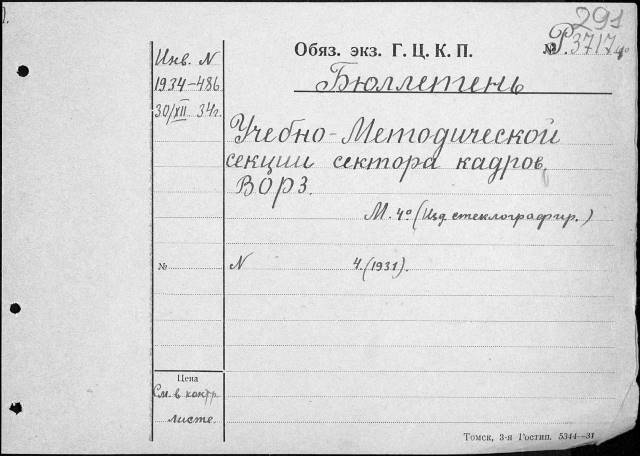 291
Обяз. экз. Г. Ц. К. П.
№ Р. 3717 4°
Инв. N
1934-486
30/XII 34г.
Бюллетень
Учебно-Методической
секции сектора кадров
ВОРЗ.
М. 4° (Изд. стеклографир.)
№
N 4. (1931).
Цена
См. в контр.
листе.
Томск, 3-я Гостип. 5344—31